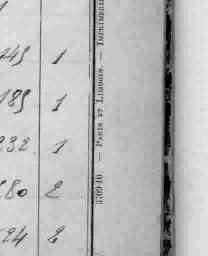 449 1
189 1
232 1
280 2
224 2
330940 — PARIS ET LIMOGES. — IMPRIMERIE